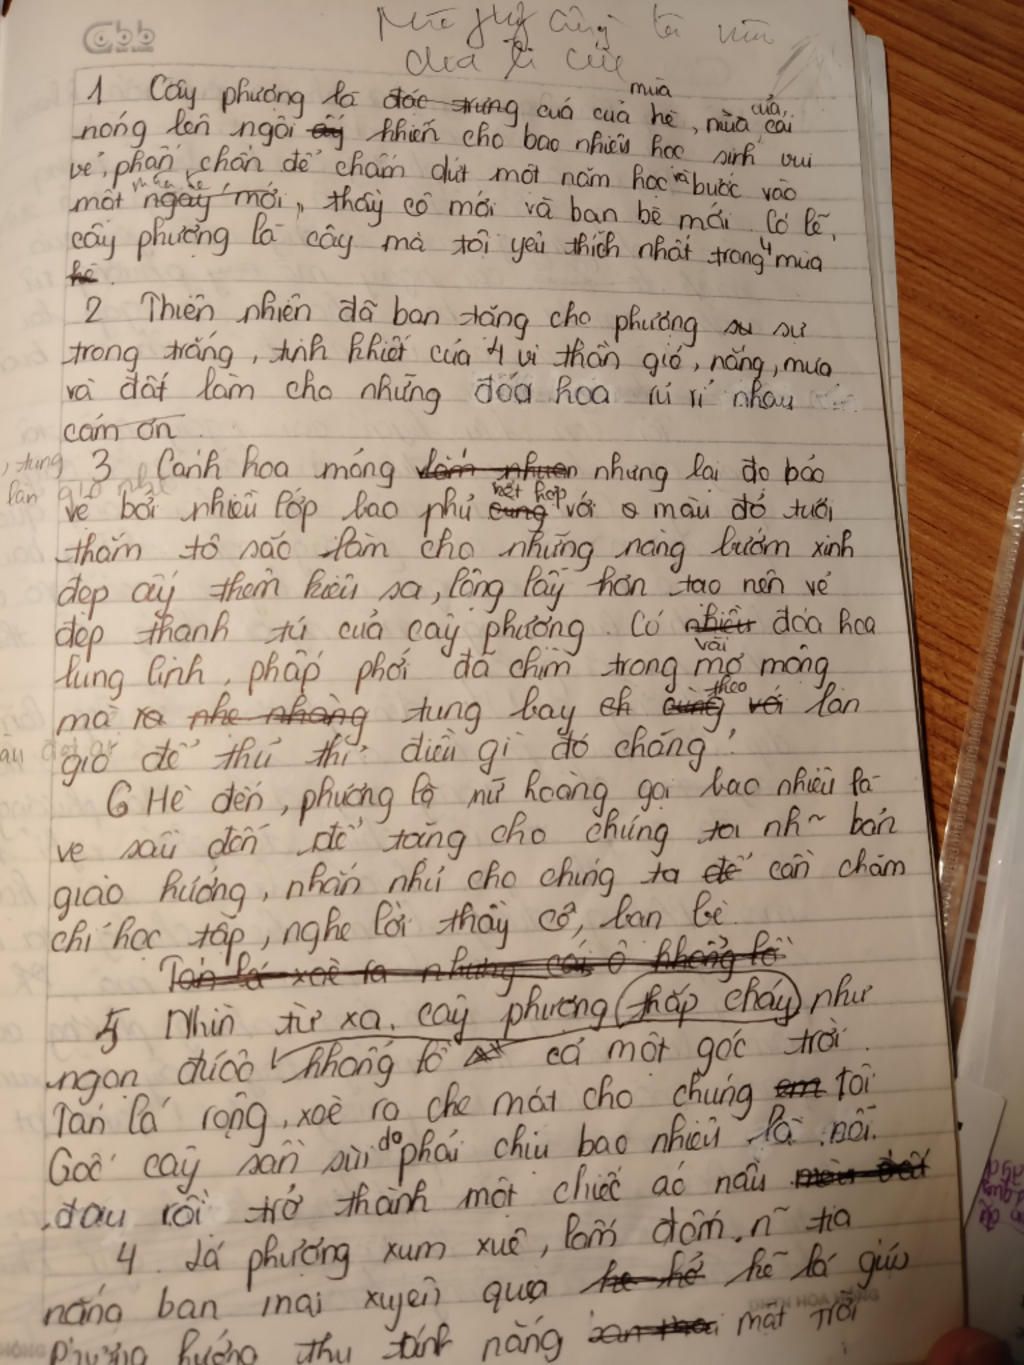 abb
1 Cây phượng là đặc trưng của của mùa hè, mùa của cái
nóng lên ngôi ấy khiến cho bao nhiêu học sinh vui
vẻ, phấn chấn để chấm dứt một năm học và bước vào
một ngày mới, thầy cô mới và bạn bè mới. Có lẽ,
cây phượng là cây mà tôi yêu thích nhất trong 4 mùa
hè.
2 Thiên nhiên đã ban tặng cho phượng sự sự
trong trắng, tinh khiết của 4 vị thần gió, nắng, mưa
và đất làm cho những đóa hoa rủ rỉ nhau
cảm ơn.
3 Cánh hoa mỏng nhưng lại đo bảo
vệ bởi nhiều lớp bao phủ cùng kết hợp với màu đỏ tươi
thắm tô sắc làm cho những nàng bướm xinh
đẹp ấy thêm kiêu sa, lộng lẫy hơn tạo nên vẻ
đẹp thanh tú của cây phượng. Có nhiều vài đóa hoa
lung linh, phấp phới đã chìm trong mơ mộng
mà ra nhẹ nhàng tung bay ch cùng với theo làn
gió để thủ thỉ điều gì đó chăng!
6 Hè đến, phượng là nữ hoàng gọi bao nhiêu là
ve sầu đến để tặng cho chúng tôi nh~ bản
giao hưởng, nhắn nhủ cho chúng ta để cần chăm
chỉ học tập, nghe lời thầy cô, bạn bè.
Tán lá xoè ra như cái ô khổng lồ
5 Nhìn từ xa, cây phượng thắp cháy như
ngọn đuốc khổng lồ cả một góc trời.
Tán lá rộng, xoè ra che mát cho chúng em tôi
Gốc cây sần sùi do phải chịu bao nhiêu là nỗi
đau rồi trở thành một chiếc áo nâu màu đất
4. Lá phượng xum xuê, lấm đốm, n~ tia
nắng ban mai xuyên qua kẽ hở kẽ lá giúp
phượng hướng thụ ánh nắng mặt trời